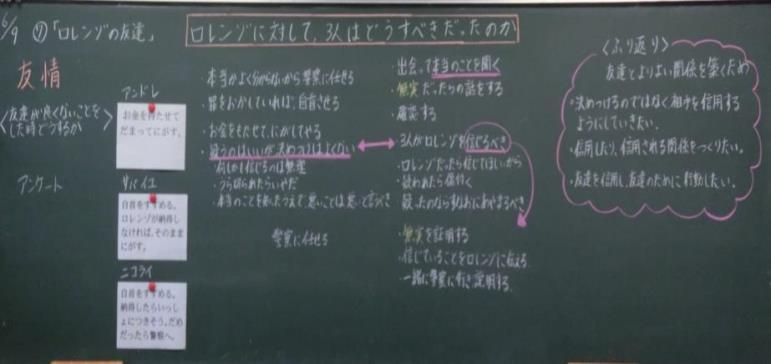 6/9 ⑦「ロレンゾの友達」
ロレンゾに対して、3人はどうすべきだったのか
友情
〈友達が良くないことを
した時どうするか〉
アンケート
アンドレ
お金を持たせて
だまってにがす。
サバイユ
自首をすすめる。
ロレンゾが納得し
なければ、そのまま
にがす。
ニコライ
自首をすすめる。
納得したらいっし
ょにつきそう。だめ
だったら警察へ。
・本当かよく分からないから警察に任せる
・罪をおかしていれば、自首させる
・お金をもたせて、にがしてやる
・疑うのはいいが決めつけはよくない
何でも信じるのは無理
・うら切られたらいやだ
・本当のことを知ったうえで、悪いことは悪いと言うべき
警察に任せる
・出会って本当のことを聞く
・無実だったらの話をする
・確認する
・3人がロレンゾを信じるべき
・ロレンゾだったら信じてほしいから
・疑われたら傷付く
・疑ったのなら あやまるべき
・無実を証明する
・信じていることをロレンゾに伝える
・一緒に警察に行き証明する
〈ふり返り〉
友達とよりよい関係を築くため
・決めつけるのではなく相手を信用する
ようにしていきたい。
・信用したり、信用される関係をつくりたい。
・友達を信用し、友達のために行動したい。